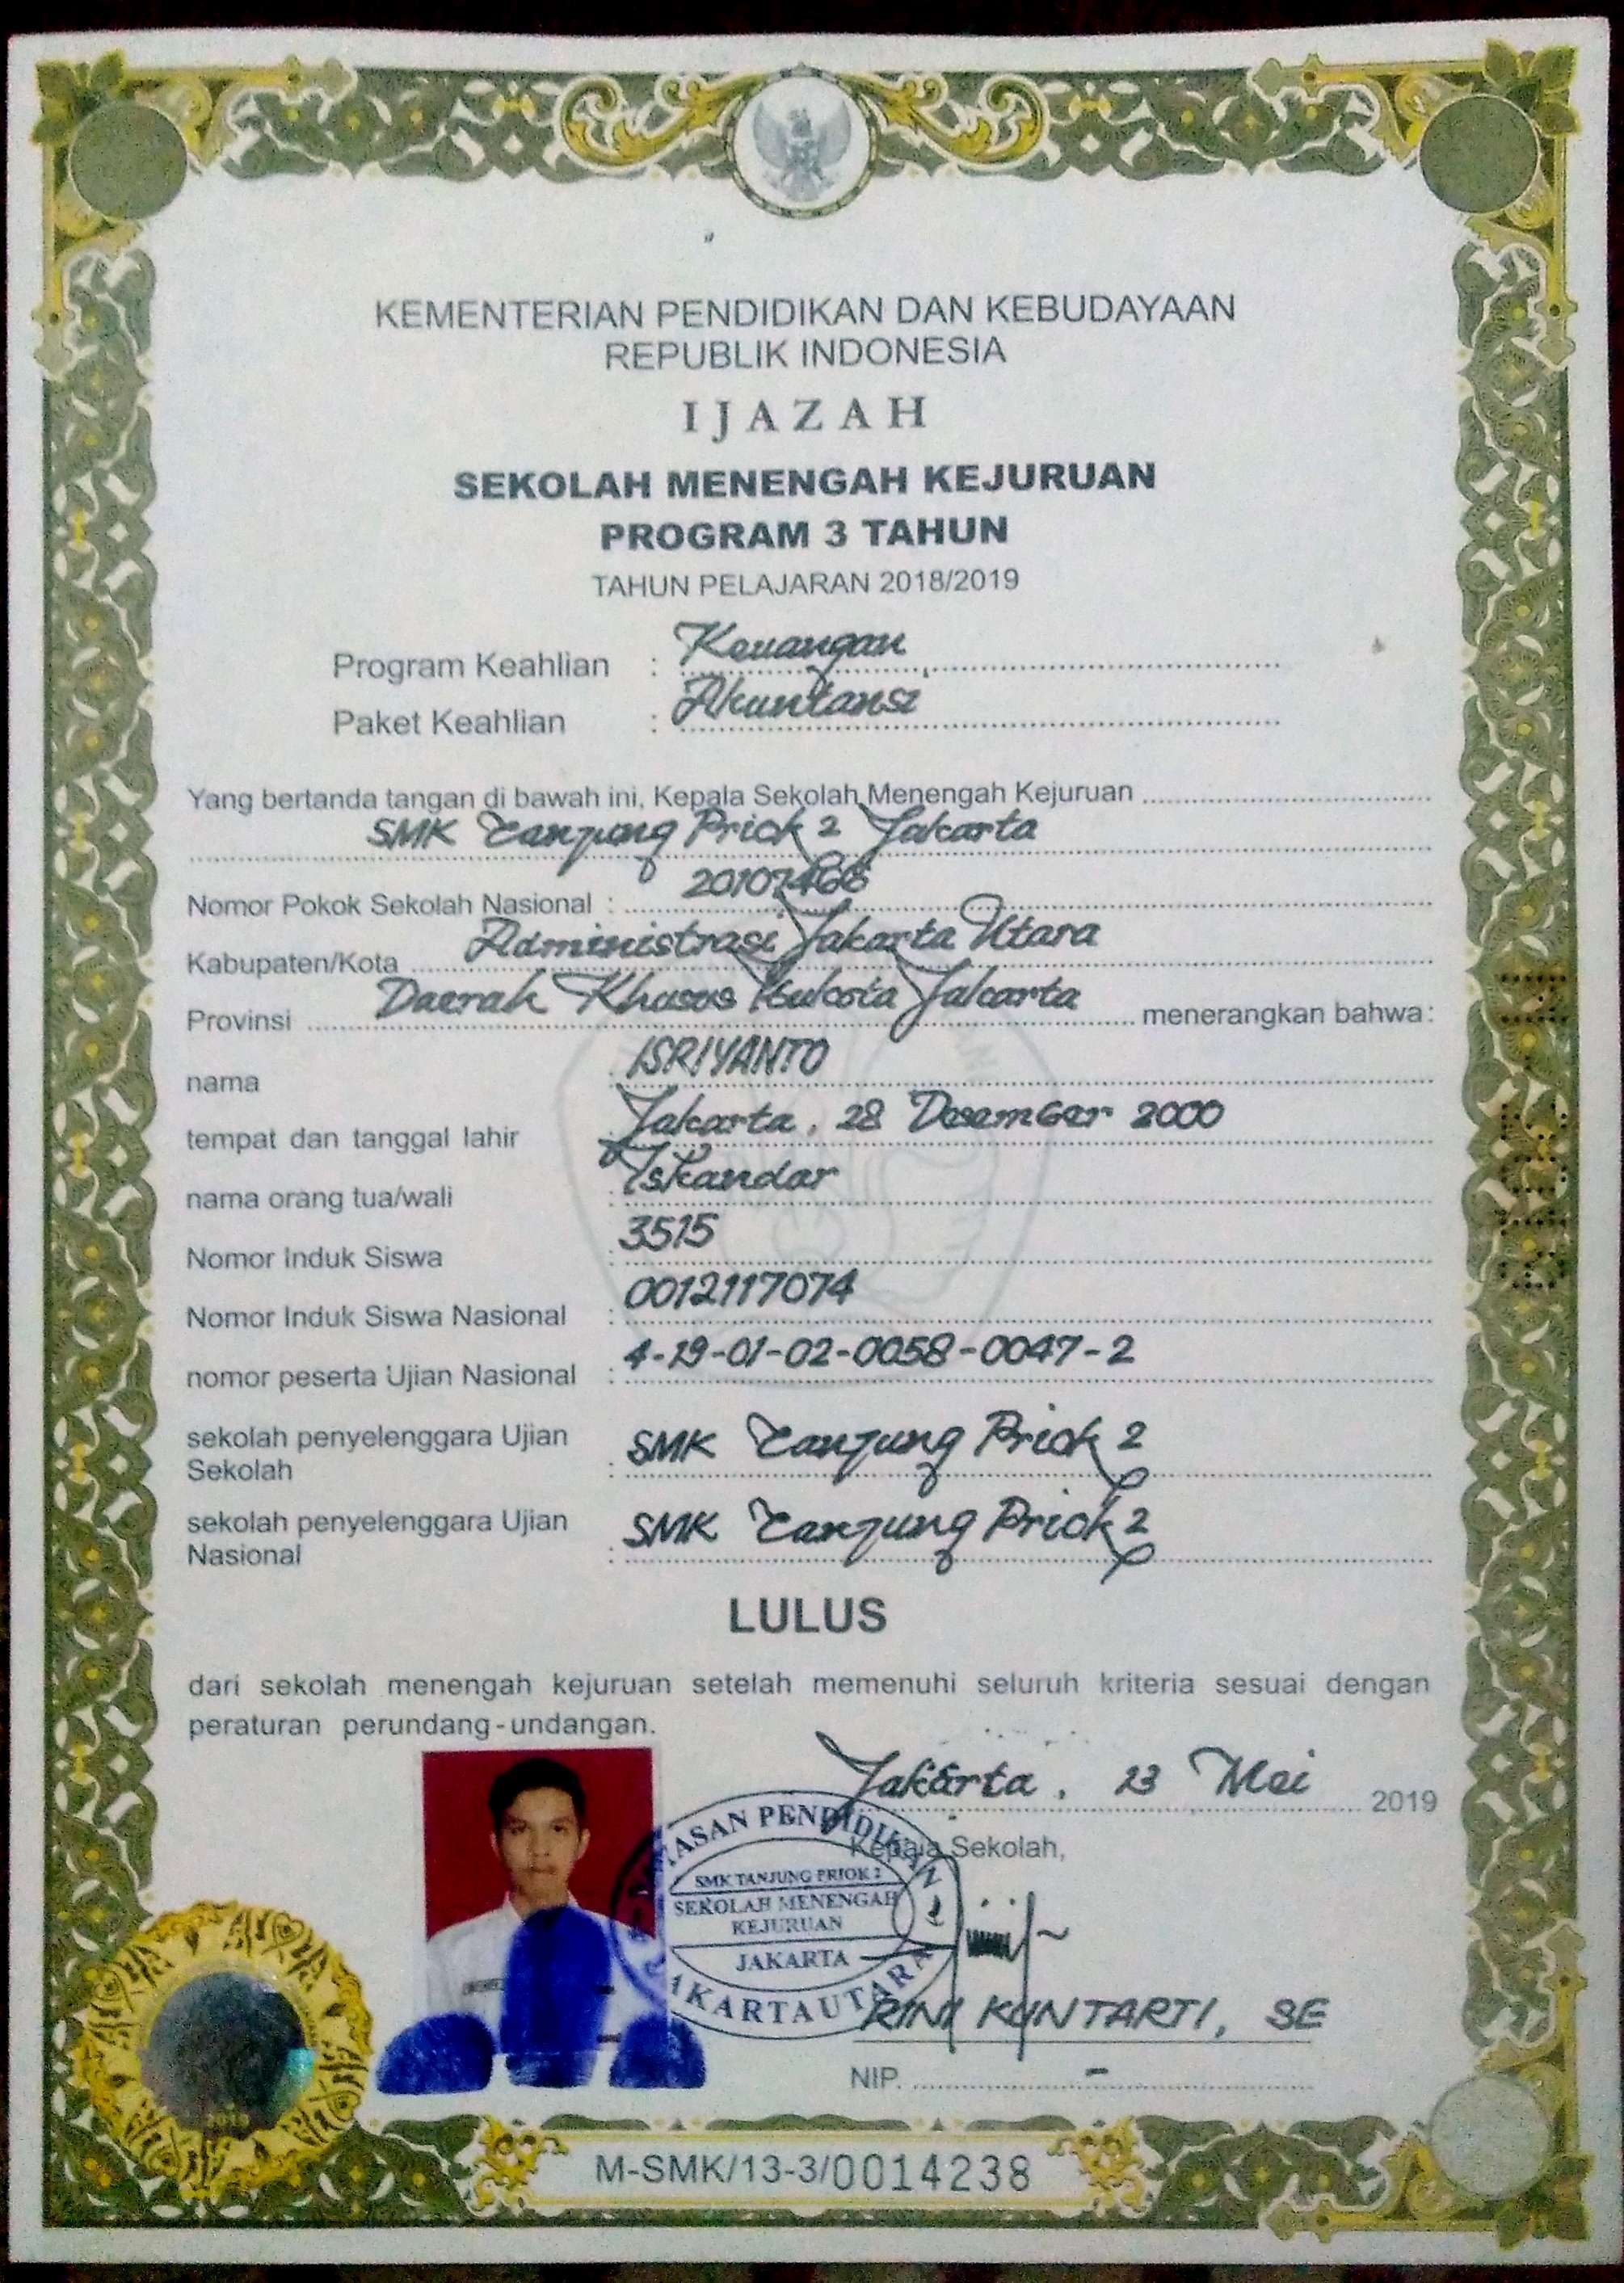 KEMENTERIAN PENDIDIKAN DAN KEBUDAYAAN
REPUBLIK INDONESIA
IJAZAH
SEKOLAH MENENGAH KEJURUAN
PROGRAM 3 TAHUN
TAHUN PELAJARAN 2018/2019
Program Keahlian : Keuangan
Paket Keahlian : Akuntansi
Yang bertanda tangan di bawah ini, Kepala Sekolah Menengah Kejuruan
SMK Tanjung Priok 2 Jakarta
Nomor Pokok Sekolah Nasional : 20107468
Kabupaten/Kota Administrasi Jakarta Utara
Provinsi Daerah Khusus Ibukota Jakarta menerangkan bahwa:
nama : ISRIYANTO
tempat dan tanggal lahir : Jakarta, 28 Desember 2000
nama orang tua/wali : Iskandar
Nomor Induk Siswa : 3515
Nomor Induk Siswa Nasional : 0012117074
nomor peserta Ujian Nasional : 4-19-01-02-0058-0047-2
sekolah penyelenggara Ujian
Sekolah : SMK Tanjung Priok 2
sekolah penyelenggara Ujian
Nasional : SMK Tanjung Priok 2
LULUS
dari sekolah menengah kejuruan setelah memenuhi seluruh kriteria sesuai dengan
peraturan perundang-undangan.
Jakarta, 23 Mei 2019
Kepala Sekolah,
YAYASAN PENDIDIKAN
SMK TANJUNG PRIOK 2
SEKOLAH MENENGAH
KEJURUAN
JAKARTA
JAKARTA UTARA
RINI KUNTARTI, SE
NIP. -
2019
M-SMK/13-3/0014238